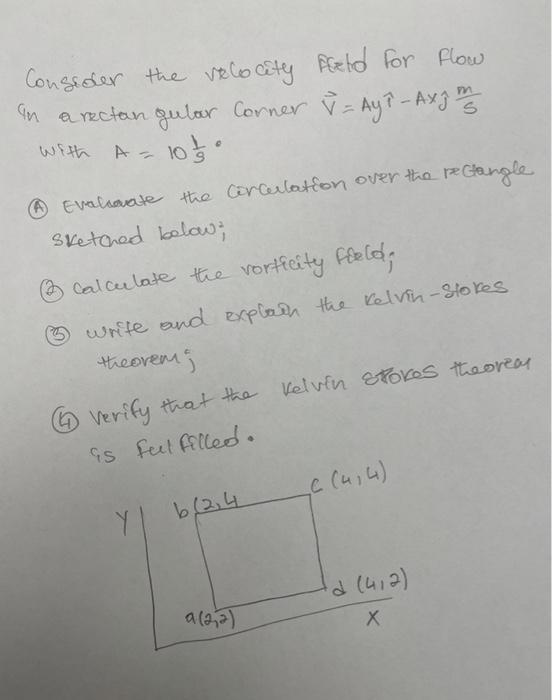 Consider the velocity field for flow
in a rectangular corner V⃗ = Ayî - Axĵ m/s
with A = 10 1/s.
(A) Evaluate the circulation over the rectangle
sketched below;
(2) calculate the vorticity field;
(3) write and explain the Kelvin-Stokes
theorem;
(4) verify that the Kelvin Stokes theorem
is fulfilled.
Y b(2,4 c (4,4)
a(2,2) d (4,2)
X